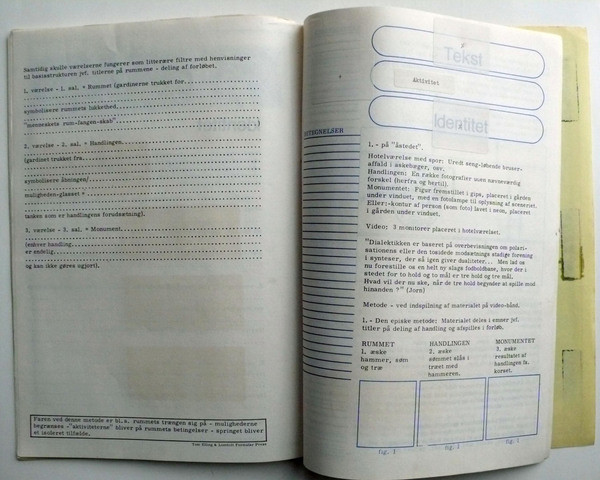 Samtidig skulle værelserne fungerer som litterære filtre med henvisninger
til basisstrukturen jvf. titlerne på rummene - deling af forløbet.
1. værelse - 1. sal. + Rummet (gardinerne trukket for
symbolisere rummets lukkethed
"menneskets rum-fangen-skab" )
2. værelse - 2. sal. + Handlingen.
(gardinet trukket fra
symbolisere åbningen/
muligheden-glasset ?
tanken som er handlingens forudsætning).
3. værelse - 3. sal. + Monument.
(enhver handling
er endelig.
og kan ikke gøres ugjort).
Faren ved denne metode er bl.a. rummets trængen sig på - mulighederne
begrænses - "aktiviteterne" bliver på rummets betingelser - springet bliver
et isoleret tilfælde.
Tekst
Aktivitet
Identitet
TEGNELSER
1. - på "åstedet".
Hotelværelse med spor: Uredt seng-løbende bruser-
affald i askebæger, osv.
Handlingen: En række fotografier uden nævneværdig
forskel (herfra og hertil).
Monumentet: Figur fremstillet i gips, placeret i gården
under vinduet, med en fotolampe til oplysning af sceneriet.
Eller:-kontur af person (som foto) lavet i sneen, placeret
i gården under vinduet.
Video: 3 monitorer placeret i hotelværelset.
"Dialektikken er baseret på overbevisningen om polari-
sationens eller den tosidede modsætnings stadige forening
i synteser, der så igen giver dualiteter... Men lad os
nu forestille os en helt ny slags fodboldbane, hvor der i
stedet for to hold og to mål er tre hold og tre mål.
Hvad vil der nu ske, når de tre hold begynder at spille mod
hinanden ?" (Jorn)
Metode - ved indspilning af materialet på video-bånd.
1. - Den episke metode: Materialet deles i emner jvf.
titler på deling af handling og afspilles i forløb.
RUMMET HANDLINGEN MONUMENTET
1. æske 2. æske 3. æske
hammer, søm sømmet slås i resultatet af
og træ træet med handlingen fx.
hammeren. korset.
fig. 1 fig. 1 fig. 1